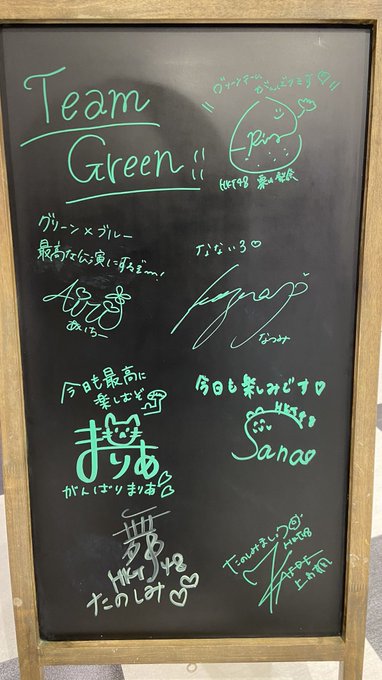 Team
Green!!
グリーンチーム
がんばります♡
Rina
HKT48
グリーン×ブルー
最高な公演にするぞ〜!
あいちー
なないろ♡
なつみ
今日も最高に
楽しむぞ
まりあ
がんばりまりあ
今日も楽しみです♡
HKT48
Sana
舞
HKT48
たのしみ♡♡
たのしみましょう
HKT48